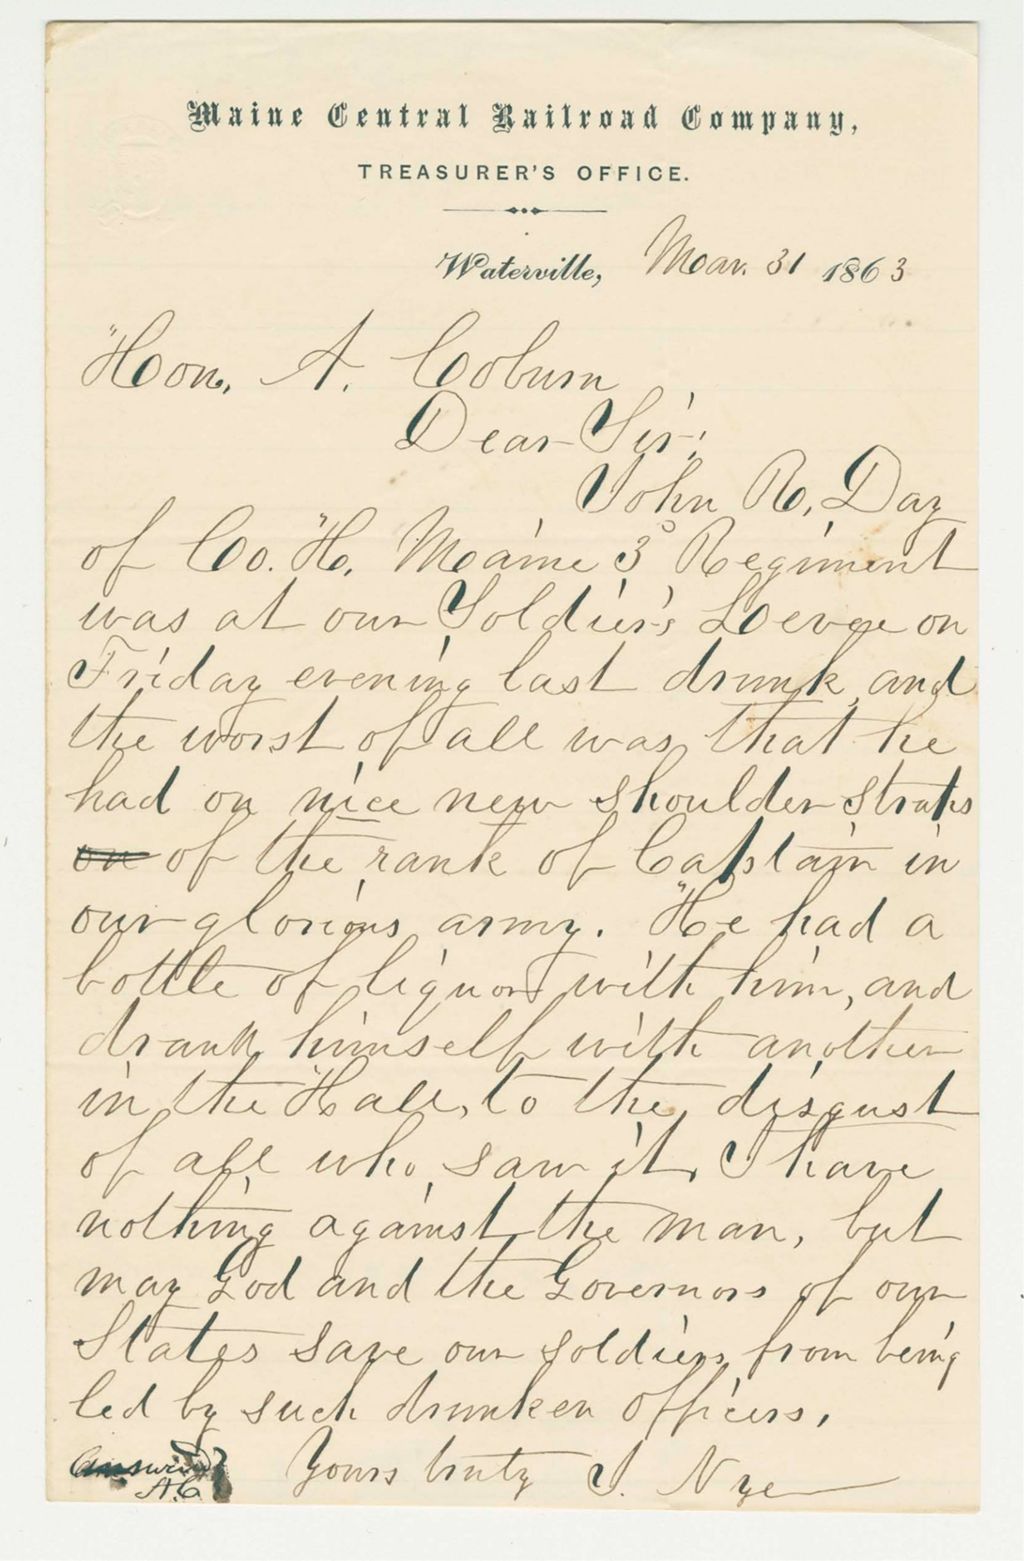 Maine Central Railroad Company,
TREASURER'S OFFICE.
Waterville, Mar. 31 1863
Hon. A. Coburn
Dear Sir:
John R. Day
of Co. H. Maine 3d Regiment
was at our Soldier's Levee on
Friday evening last drunk, and
the worst of all was, that he
had on nice new shoulder straps
on of the rank of Captain in
our glorious army. He had a
bottle of liquor with him, and
drank himself with another
in the Hall, to the disgust
of all who saw it. I have
nothing against the man, but
may God and the Governors of our
States save our soldiers from being
led by such drunken officers.
Yours truly J. Nye
Answered
A.C.